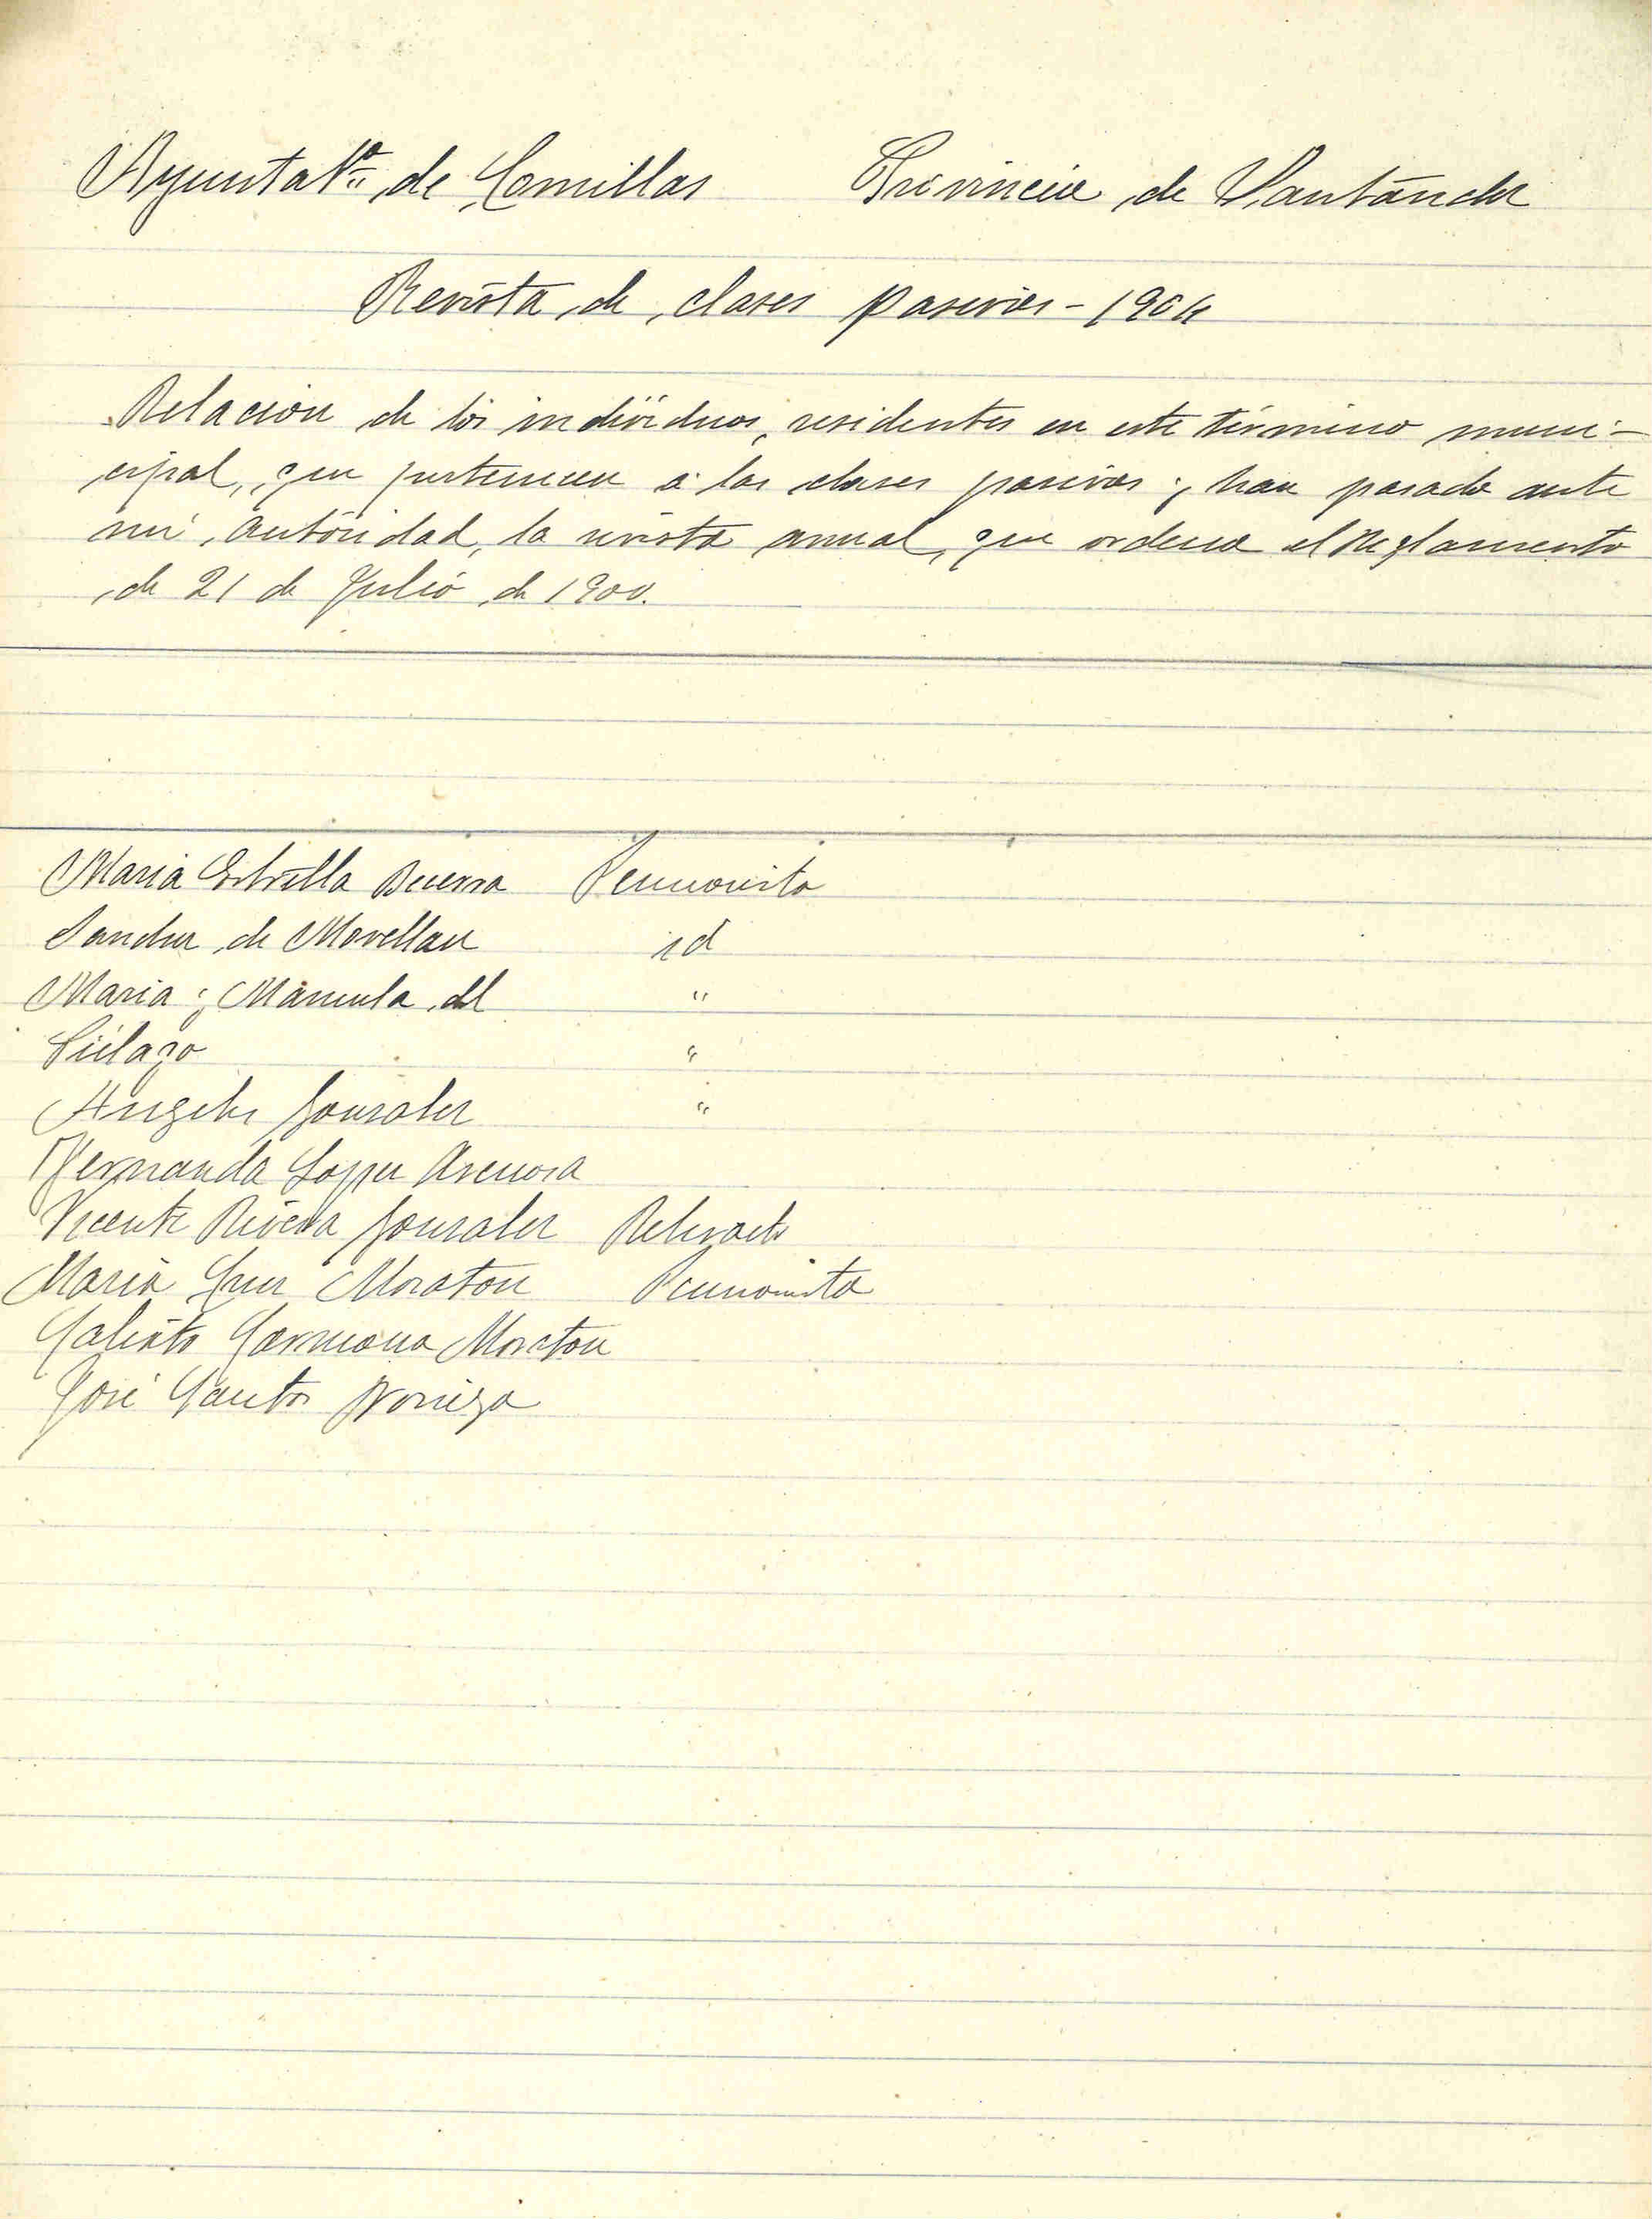 Ayuntato de Comillas Provincia de Santander
Revista de clases pasivas - 1904
Relacion de los individuos, residentes en este término muni-
cipal, que pertenecen a las clases pasivas y han pasado ante
mi autoridad, la revista anual, que ordena el Reglamento
de 21 de Julio de 1900.
Maria Estrella Becerra Pensionista
Sanchez de Movellan id
Maria y Manuela del "
Piélago "
Angeles Gonzalez "
Fernanda Lopez Arenosa
Vicente Rivera Gonzalez Retirado
Maria Cruz Moraton Pensionista
Calisto Carmona Moraton
José Santos Noriega